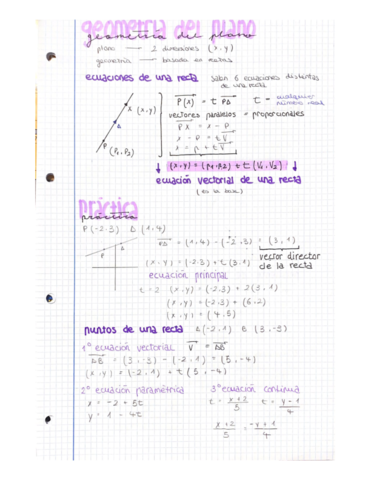 geometría del plano
geometría del plano
plano 2 dimensiones (x,y)
geometría basada en rectas
ecuaciones de una recta salen 6 ecuaciones distintas
de una recta
P(X) = t PA t = cualquier
número real
vectores paralelos = proporcionales
PX = x - P
x - P = tV
x = P + tV
X (x,y)
A
P (P1,P2)
(x,y) = (p1,p2) + t(V1,V2)
ecuación vectorial de una recta
(es la base)
práctica
práctica
P(-2.3) A(1,4)
PA = (1,4) - (-2,3) = (3,1)
vector director
de la recta
(x,y) = (-2.3) + t(3.1)
ecuación principal
t=2 (x,y) = (-2.3) + 2(3,1)
(x,y) = (-2.3) + (6,2)
(x,y) = (4,5)
puntos de una recta A(-2,1) B(3,-3)
1º ecuación vectorial V = AB
AB = (3,-3) - (-2,1) = (5,-4)
(x,y) = (-2,1) + t(5,-4)
2º ecuación paramétrica 3º ecuación continua
x = -2 + 5t t = x+2/5 t = y-1/4
y = 1 - 4t
x+2/5 = -y+1/4